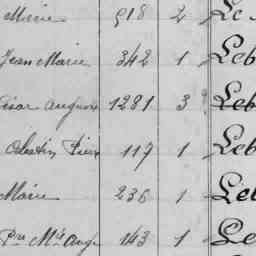 Marie 918 2 Le
Jean Marie 342 1 Leb
César August 1281 3 Leb
Célestin Pierre 117 1 Leb
Marie 236 1 Leb
Pre Mie Ange 143 1 Le